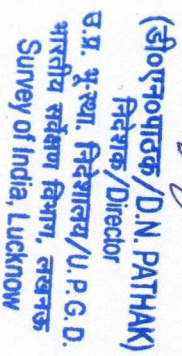 (डी०एन०पाठक/D.N. PATHAK)
निदेशक/Director
उ.प्र. भू-स्था. निदेशालय/U.P.G.D.
भारतीय सर्वेक्षण विभाग, लखनऊ
Survey of India, Lucknow